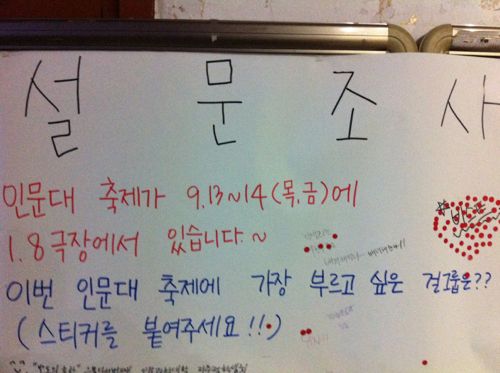 설문조사
인문대 축제가 9.13~14(목,금)에
1.8극장에서 있습니다.~
이번 인문대 축제에 가장 부르고 싶은 걸그룹은??
(스티커를 붙여주세요!!)